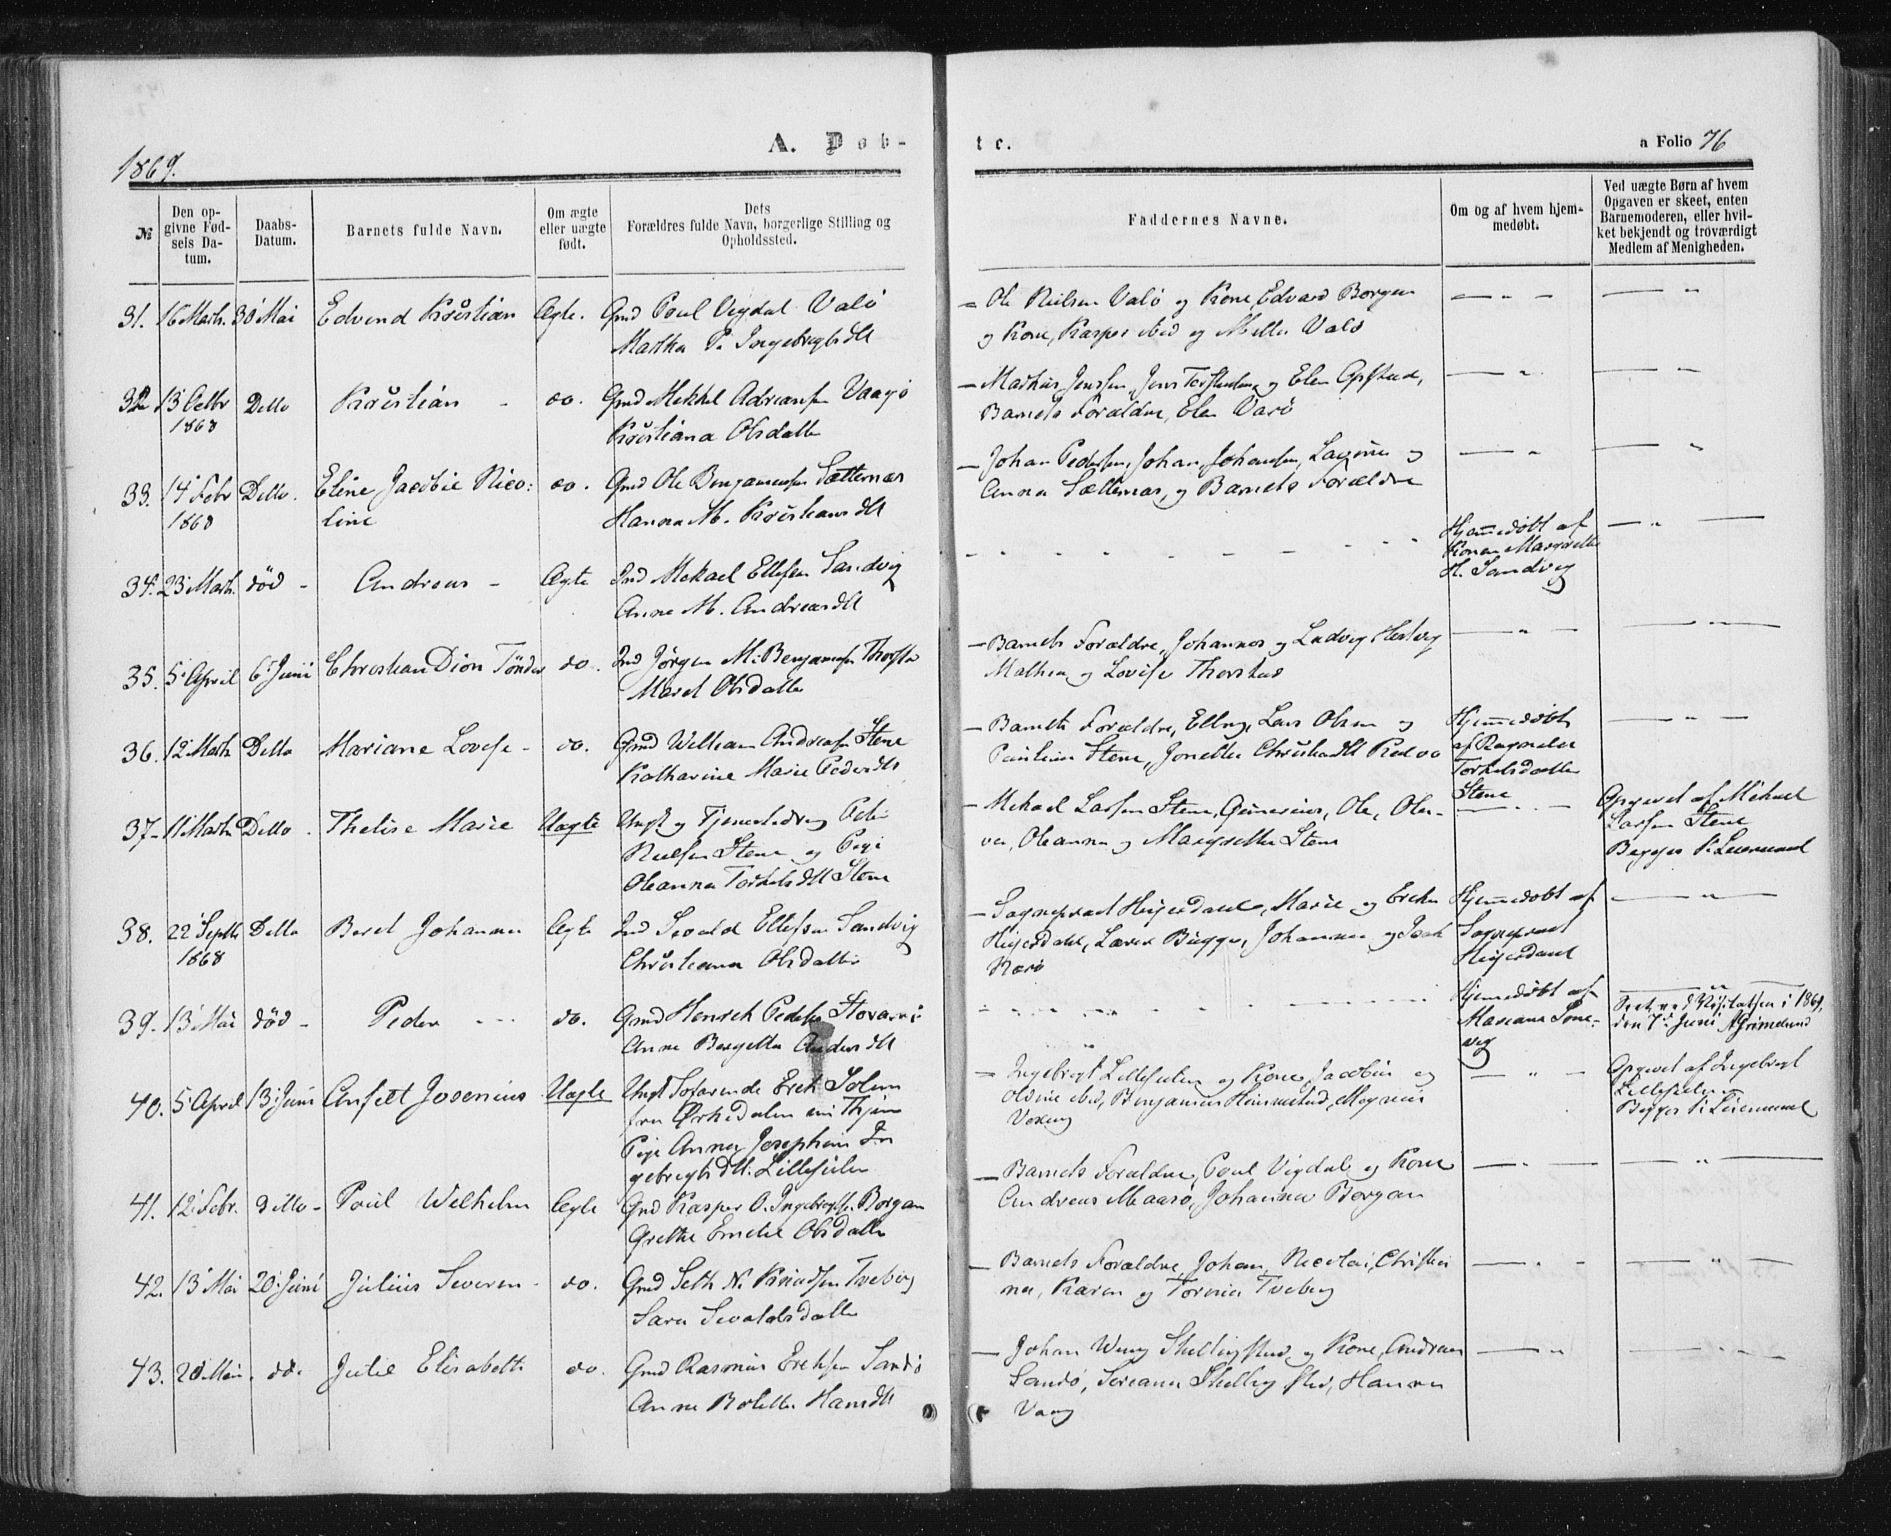 1869.
A. Døb-
te.
a Folio 76
№
Den op-
givne Fød-
sels Da-
tum.
Daabs-
Datum.
Barnets fulde Navn.
Om ægte
eller uægte
født.
Dets
Forældres fulde Navn, borgerlige Stilling og
Opholdssted.
Faddernes Navne.
Om og af hvem hjem-
medøbt.
Ved uægte Børn af hvem
Opgaven er skeet, enten
Barnemoderen, eller hvil-
ket bekjendt og troværdigt
Medlem af Menigheden.
31. 16 Marts. 30 Mai Edvind Kristian Ægte. Gmd Poul Vigdal Valö
Martha P. Ingebregtsdtt
— Ole Nielsen Valö og Kone, Edvard Borgen
og Kone, Kasper ibid og Mette Valö
32 13 Octbr Ditto Kristian - do. Gmd Mekkel Adriansen Vaagö
1868
Kristiana Olsdatter
— Markus Jenssen, Jens Torstensen og Elen Opstad,
Barnets Forældre, Elen Varö
33. 14 Febr Ditto. Eline Jacobie Nico: do. Gmd Ole Benjaminsen Sætternæs
1868
line
Hanna M. Kristiansdtt
— Johan Pedersen, Johan Johansen, Lavine og
Anna Sætternæs, og Barnets Forældre
34. 23 Marts. död - Andreas - Ægte Ind Mekael Ellefsen Sandvig
Anne M. Andreasdtt
Hjemmedöbt af
Konen Margrethe
H. Sandvig
35. 5 April 6 Juni Christian Dion Tönder do. Ind Jörgen M. Benjaminsen Thorsta
Maret Olsdatter
— Barnets Forældre, Johannes og Ludvig Hestvig
Mathea og Lovise Thorstad
36. 12 Marts Ditto Mariane Lovise - do. Gmd William Andreasen Stene
Katharine Marie Pedersdtt
— Barnets Forældre, Elling, Lars Olsen og
Pauline Stene, Jonetta Christiansdtt
Hjemmedöbt
af Ragnilda
Torkelsdatter
Stene
37 11 Marts Ditto. Theline Marie Uægte Ungk og Tjenestedreng Peder
Nielsen Stene og Pige
Oleanna Torkelsdtt Stene
— Mekael Larsen Stene, Gunerius, Ole, Oli-
va, Oleanna og Margrethe Stene
Opgivet af Mikael
Larsen Stene
Begges 1' Leiermaal
38. 22 Septbr Ditto Beret Johanna Ægte Ind Sivald Ellefsen Sandvig
1868
Christiana Olsdatter
— Sognepræst Heijerdahl, Marie og Erika
Heijerdahl, Lærer Bugge, Johanna og Isak
Hjemmedöbt af
Sognepræst
Heijerdahl
39. 13 Mai död - Peder --- do. Gmd Henrik Pedersen Storarni
Anne Bergitta Andersdtt
Hjemmedöbt af
Mariane Sone-
vig
Seet ved Visitatsen i 1869,
den 7de Juni, AGrimelund
40. 5 April 13 Juni Anfelt Josenius Uægte Ungk Söfarende Erik Solem
fra Örkedalen
Pige Anna Josephine In
gebregtsdtt. Lillefuilen
— Ingebregt Lillefuilen og Kone, Jacobine og
Oldine ibid, Benjamin Heimstad, Magnus
Opgivet af Ingebregt
Lillefuilen
Begges 1' Leiermaal
41. 12 Febr. Ditto - Poul Welhelm Ægte Gmd Kasper O. Ingebregtsen Borgan
Grethe Emelie Olsdatter
— Barnets Forældre, Poul Vigdal og Kone
Andreas Maasö, Johanna Borgan
42. 13 Mai 20 Juni Julius Severin - do. Gmd Seth N. Knudsen Tveberg
Sara Sivaldsdatter
— Barnets Forældre, Johan, Nicolai, Christia
na, Karen og Torina Tveberg
43. 20 Mai. do. Julie Elisabeth do. Gmd Rasmus Eriksen Sandö
Anne Bolette Hansdtt
— Johan Weng Skillingsstad og Kone, Andreas
Sandö, Hanna
Vaag